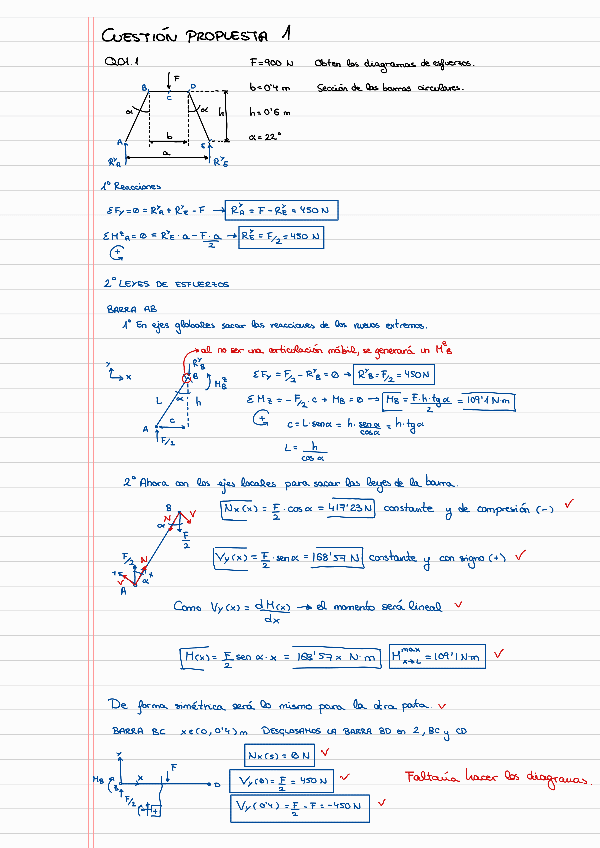 CUESTIÓN PROPUESTA 1
Q01.1 F=900 N Obten los diagramas de esfuerzos.
b=0'4 m Sección de las barras circulares.
h=0'6 m
α=22°
F
B D
C
α α h
b
A E
a
R^y_A R^y_E
1° Reacciones
ΣFy=0 = R^y_A + R^y_E - F → R^y_A = F - R^y_E = 450 N
ΣM^z_A = 0 = R^y_E · a - F·a/2 → R^y_E = F/2 = 450 N
+
2° LEYES DE ESFUERZOS
BARRA AB
1° En ejes globales sacar las reacciones de los nuevos extremos.
al no ser una articulación móbil, se generará un M^z_B
y
x
R^y_B
B M^z_B
L α h
c
A
F/2
ΣFy = F/2 - R^y_B = 0 → R^y_B = F/2 = 450 N
ΣMz = - F/2 · c + M_B = 0 → M_B = F·h·tgα/2 = 109'1 N·m
+
c = L·senα = h·senα/cosα = h·tgα
L = h/cosα
2° Ahora con los ejes locales para sacar las leyes de la barra.
B
N V
α
F/2
F/2 N
x
V α
A
Nx(x) = F/2 · cosα = 417'23 N constante y de compresión (-) ✓
Vy(x) = F/2 · senα = 168'57 N constante y con signo (+) ✓
Como Vy(x) = dM(x)/dx → el momento será lineal ✓
M(x) = F/2 senα · x = 168'57 x N·m M^max_x→L = 109'1 N·m ✓
De forma simétrica será lo mismo para la otra pata. ✓
BARRA BC x∈(0,0'4) m DESGLOSAMOS LA BARRA BD en 2, BC y CD
Nx(s) = 0 N ✓
y
M_B x F
B D
F/2
+
Vy(0) = F/2 = 450 N ✓
Faltaría hacer los diagramas.
Vy(0'4) = F/2 - F = -450 N ✓